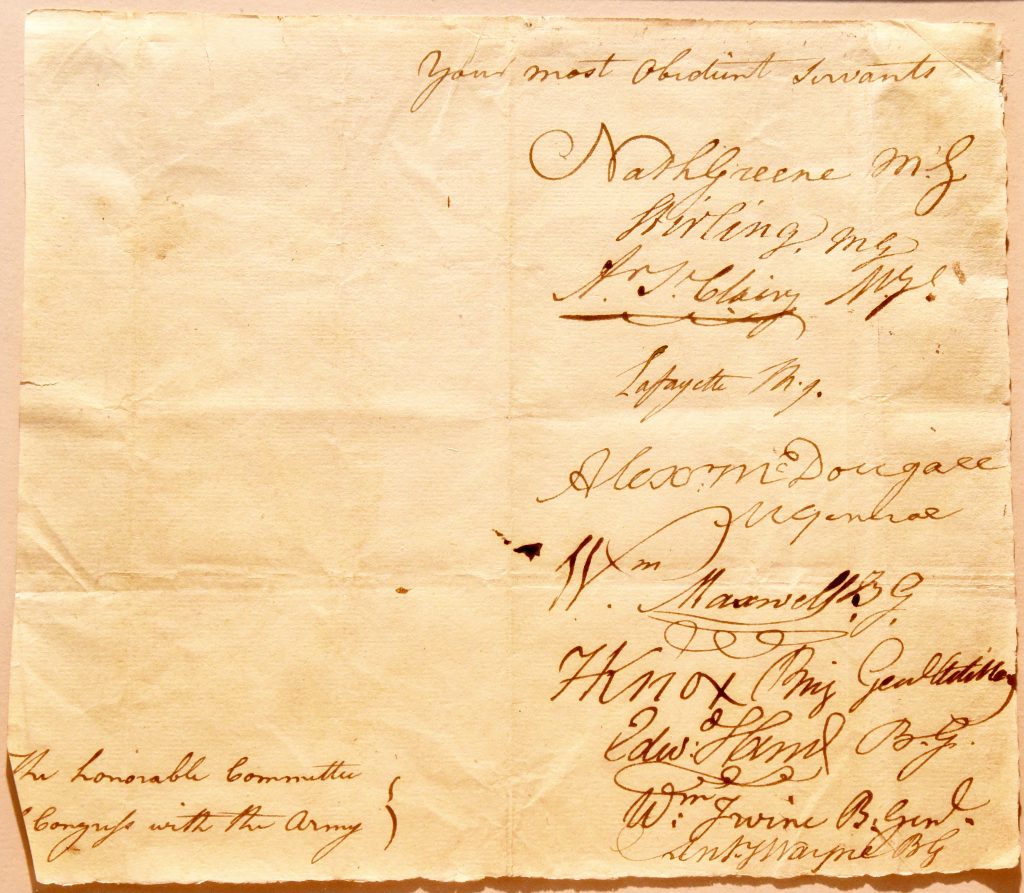 Your most Obedient Servants
Nath Greene M.G
Stirling, MG
Ar. St. Clair, M Gl.
Lafayette M.g.
Alexr. McDougall
M General
Wm. Maxwell B G.
HKnox Brig Genl Artillery
Edwd: Hand B.G.
Wm. Irvine B. Genl.
Anty Wayne BG
The honorable Committee
Congress with the Army }